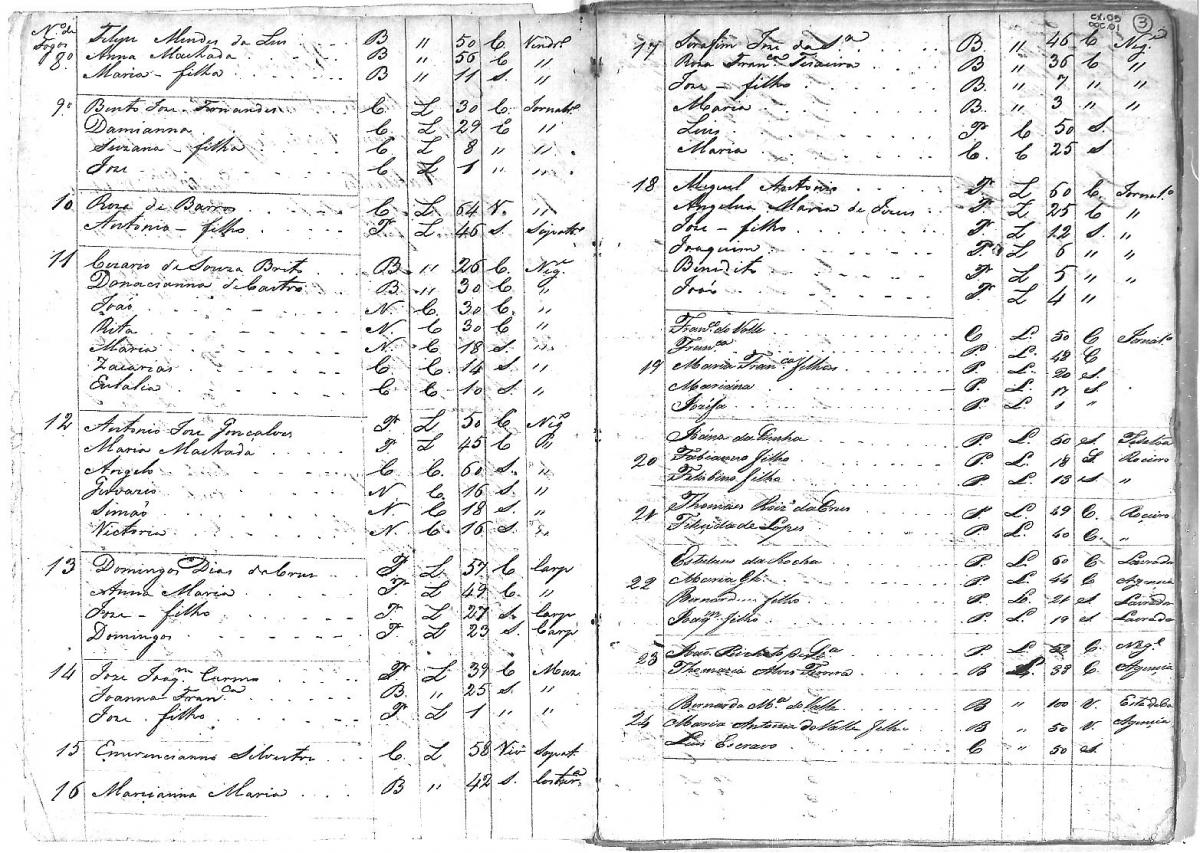 N.º de Fogos
8º Felipe Mendes da Luz B " 50 C Vendr.
Anna Machada B " 56 C "
Maria - filha B " 11 S. "
9º Bento Joze Fernandes C L 30 C. Jornalr.
Damianna C. L 29 C "
Suzana - filha C L 8 " "
Joze C L 1 " "
10 Roza de Barros C. L. 64 V. "
Antonio - filho P L. 46 S. Sapatr.
11 Cezario de Souza Brito B " 26 C. Neg.
Donacianna de Castro B. " 30 C "
João N. C. 30 C. "
Rita N. C 30 C "
Maria N. C 18 S. "
Zacarias C C 14 S "
Eulalia C C. 10 S. "
12 Antonio Joze Goncalves P L 50 C Neg.
Maria Machada P L 45 C
Angelo C C. 60 S. "
Gervazio N C 16 S "
Simaõ N C 18 S "
Victoria N C. 16 S. "
13 Domingos Dias da Crus P L. 57 C Carp
Anna Maria P L 49 C. "
Joze - filho P L 27 S. Carp
Domingos P L 23 S Carp
14 Joze Joaq.m Carmo P L 39 C Muz
Joanna Fran.ca B. " 25 S. "
Joze . filho P L 1 " "
15 Emerencianno Silvestre C. L 58 Viv Sapat.
16 Marianna Maria B " 42 S. Costur.a
CX.05
DOC.01
3
17 Serafim Joze da S.a B. " 46 C Neg.
Roza Fran.ca Teixeira B " 36 C "
Joze - filho B. " 7 " "
Maria B " 3 " "
Luis P C 50 S.
Maria C. C 25 S
18 Miguel Antonio P L 60 C Jornal.º
Angelica Maria de Jezus P L 25 C "
Joze - filho P L 12 S "
Joaquim P. L 6 " "
Benidito P L 5 " "
João P L 4 "
19 Fran.co do Valle C L. 50 C Jornal.º
Fran.ca P. L. 48 C
Maria Fran.ca filhas P. L. 20 S
Mariana P. L. 17 S
Jozefa P. L. 1 "
20 da Cunha P. L. 50 S
Fabianno filho P. L. 18 S Roceiro
filho P. L. 13 S "
21 Thomas da Crus L. 49 C Roceiro
Felicidade Lopes P. L. 40 C. "
22 da Rocha P. L. 60 C Lavrador
Maria P. L. 44 C Agencia
Bernard filho P L. 21 S Lavrador
Joaq.m filho P. L. 19 S Lavrador
23 P L 52 C. Neg.
Thomazia Alves B L. 38 C Agencia
24 Bernarda M.a do Valle B " 100 V.
Maria Antonia do Valle filha B " 50 V. Agencia
Luis Escravo C " 50 S.